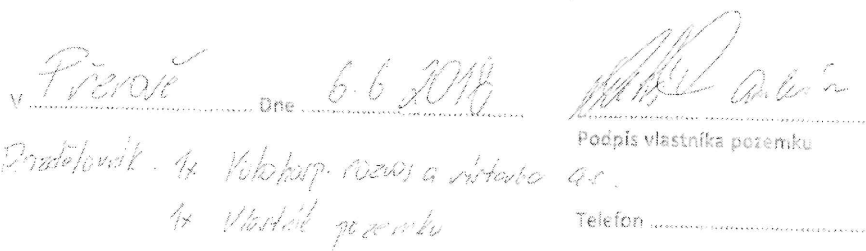 V Přerově Dne 6.6 2018
Podpis vlastníka pozemku
1x rozvoj a výstavba a.s.
1x Vlastník pozemku
Telefon